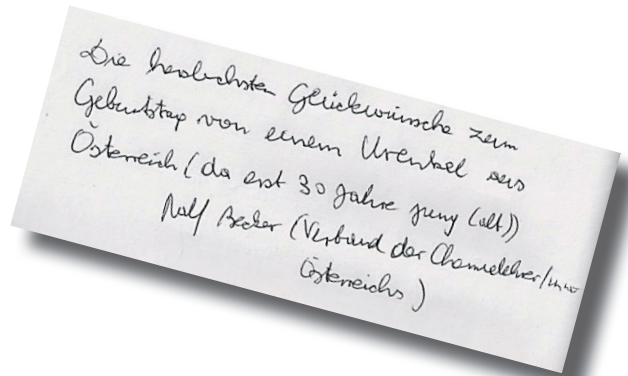 Die herzlichsten Glückwünsche zum
Geburtstag von einem Urenkel aus
Österreich (da erst 30 Jahre jung (alt))
Ralf Becker (Verband der Chemielehrer/innen
Österreichs)